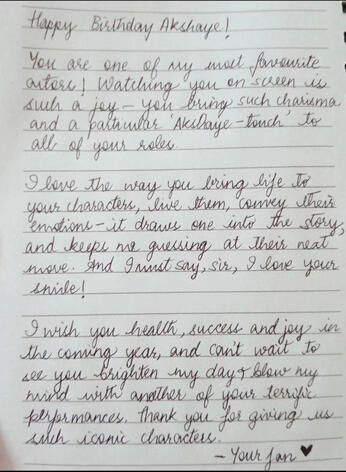 Happy Birthday Akshaye!
You are one of my most favourite
actors! Watching you on screen is
such a joy - you bring such charisma
and a particular 'Akshaye-touch' to
all of your roles.
I love the way you bring life to
your characters, live them, convey their
emotions - it draws one into the story,
and keeps me guessing at their next
move. And I must say, sir, I love your
smile!
I wish you health, success and joy in
the coming year, and can't wait to
see you brighten my day & blow my
mind with another of your terrific
performances. Thank you for giving us
such iconic characters.
- Your fan ♥